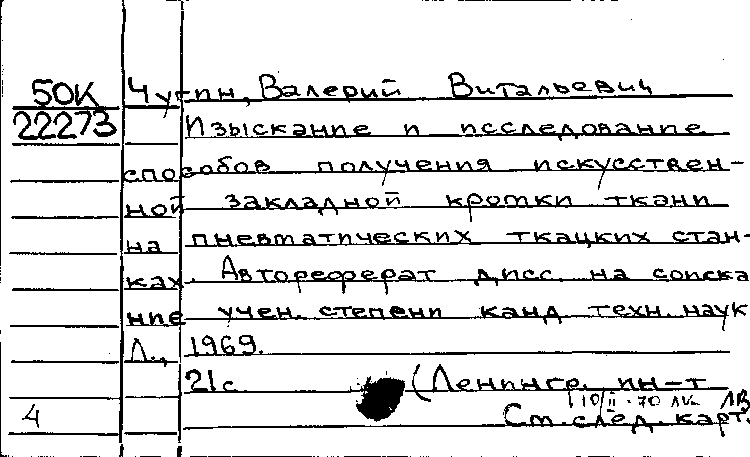 50К Чугин, Валерий Витальевич
22273 Изыскание и исследование
способов получения искусствен-
ной закладной кромки ткани
на пневматических ткацких стан-
ках. Автореферат дисс. на соиска
ние учен. степени канд. техн. наук
Л., 1969.
21 с. (Ленингр. ин-т
10/II-70 ЛВ
4 См. след. карт.